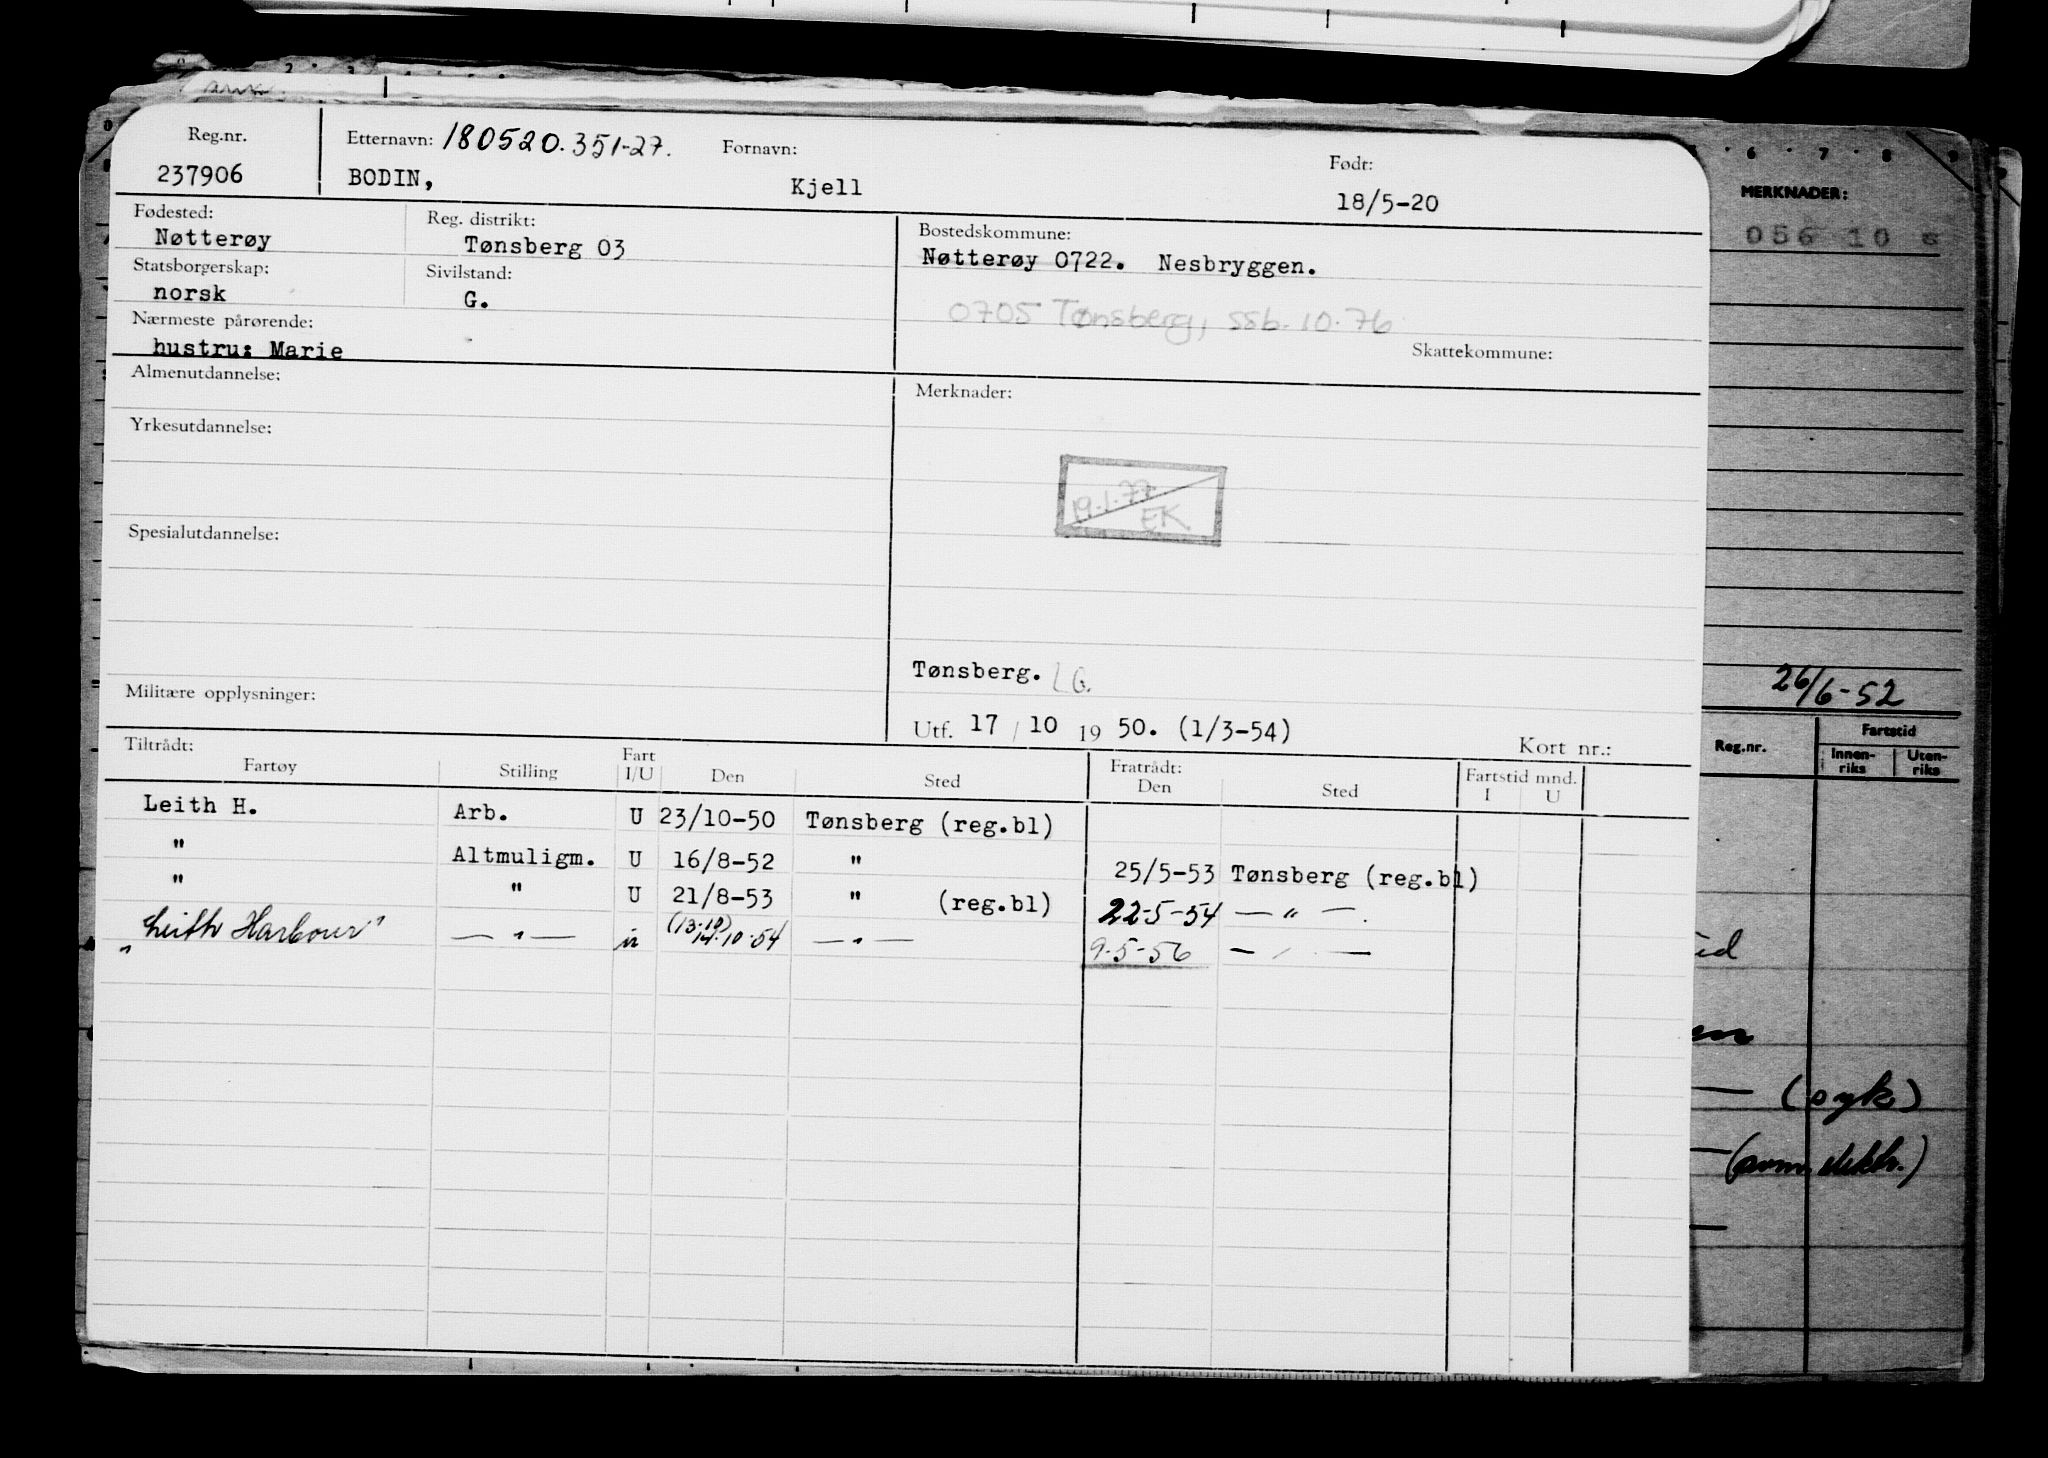 Reg.nr. Etternavn: 180520.351-27. Fornavn: Født:
237906 BODIN, Kjell 18/5-20
Fødested: Reg. distrikt: Bostedskommune:
Nøtterøy Tønsberg 03 Nøtterøy 0722. Nesbryggen.
Statsborgerskap: Sivilstand:
norsk G. 0705 Tønsberg, ssb. 10.76
Nærmeste pårørende: Skattekommune:
hustru: Marie
Almenutdannelse: Merknader:
Yrkesutdannelse:
19.1.77 EK
Spesialutdannelse:
Tønsberg. LG.
Militære opplysninger:
Utf. 17 / 10 19 50. (1/3-54) Kort nr.:
Tiltrådt: Fratrådt:
Fartøy Stilling Fart I/U Den Sted Den Sted Fartstid mnd. I U
Leith H. Arb. U 23/10-50 Tønsberg (reg.bl)
" Altmuligm. U 16/8-52 " 25/5-53 Tønsberg (reg.bl)
" " U 21/8-53 " (reg.bl) 22-5-54 — " —.
"Leith Harbour" — " — u (13.10) 14.10.54 — " — 9.5-56 — " —
6 7 8 9
MERKNADER:
056 10
26/6-52
Reg.nr. Fartstid
Innen-riks Uten-riks
(syk)